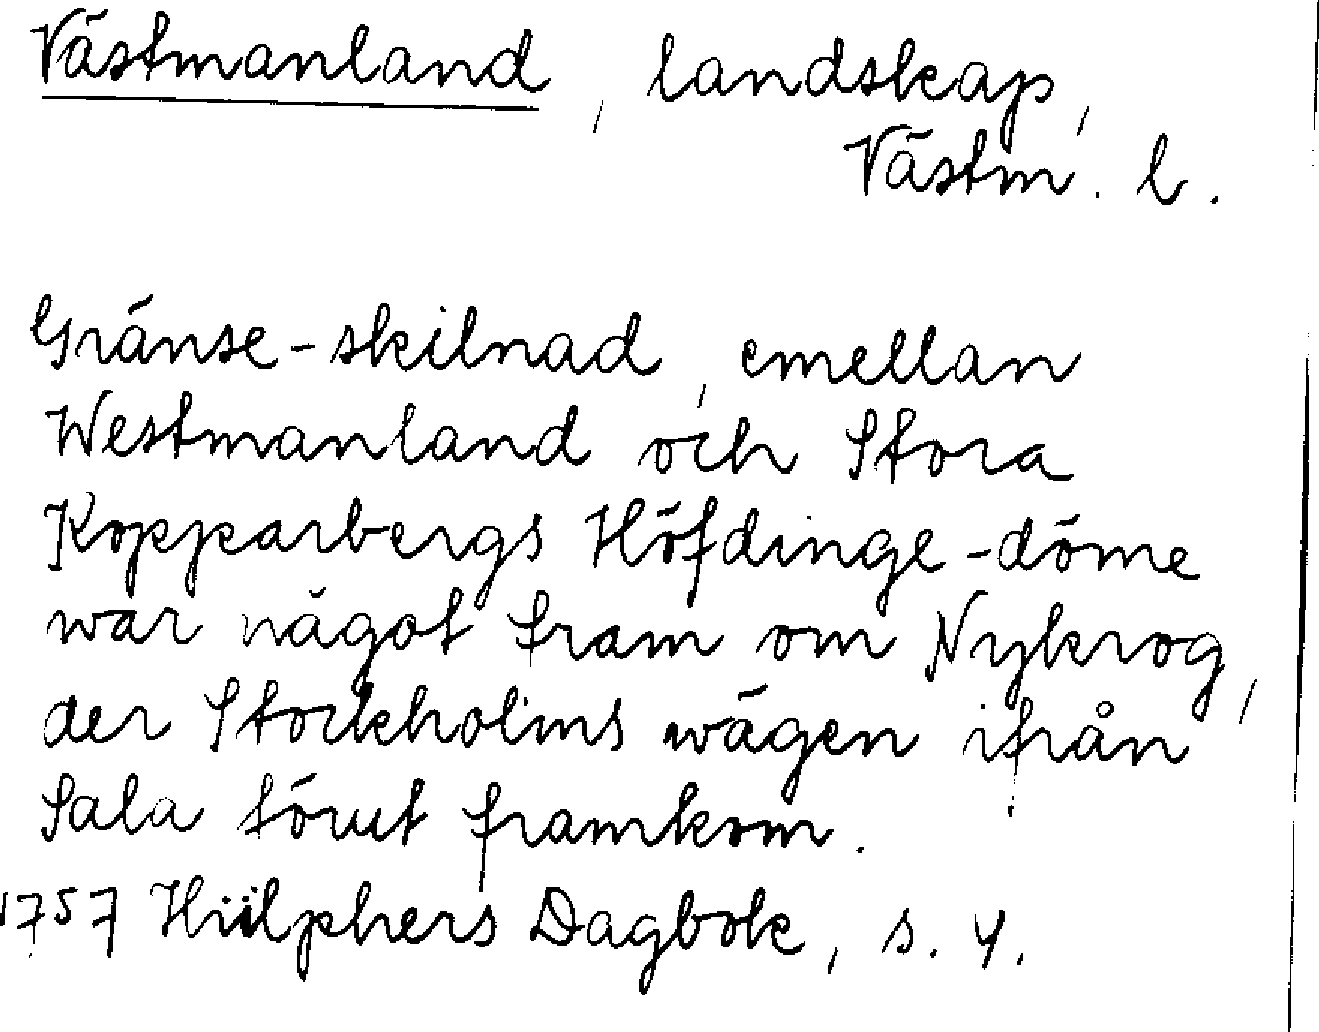 Västmanland, landskap,
Västm. l.
Gränse-skilnad, emellan
Westmanland och Stora
Kopparbergs Höfdinge-döme
war något fram om Nykrog,
der Stockholms wägen ifrån
Sala förut framkom.
1757 Hülphers Dagbok, s. 4.